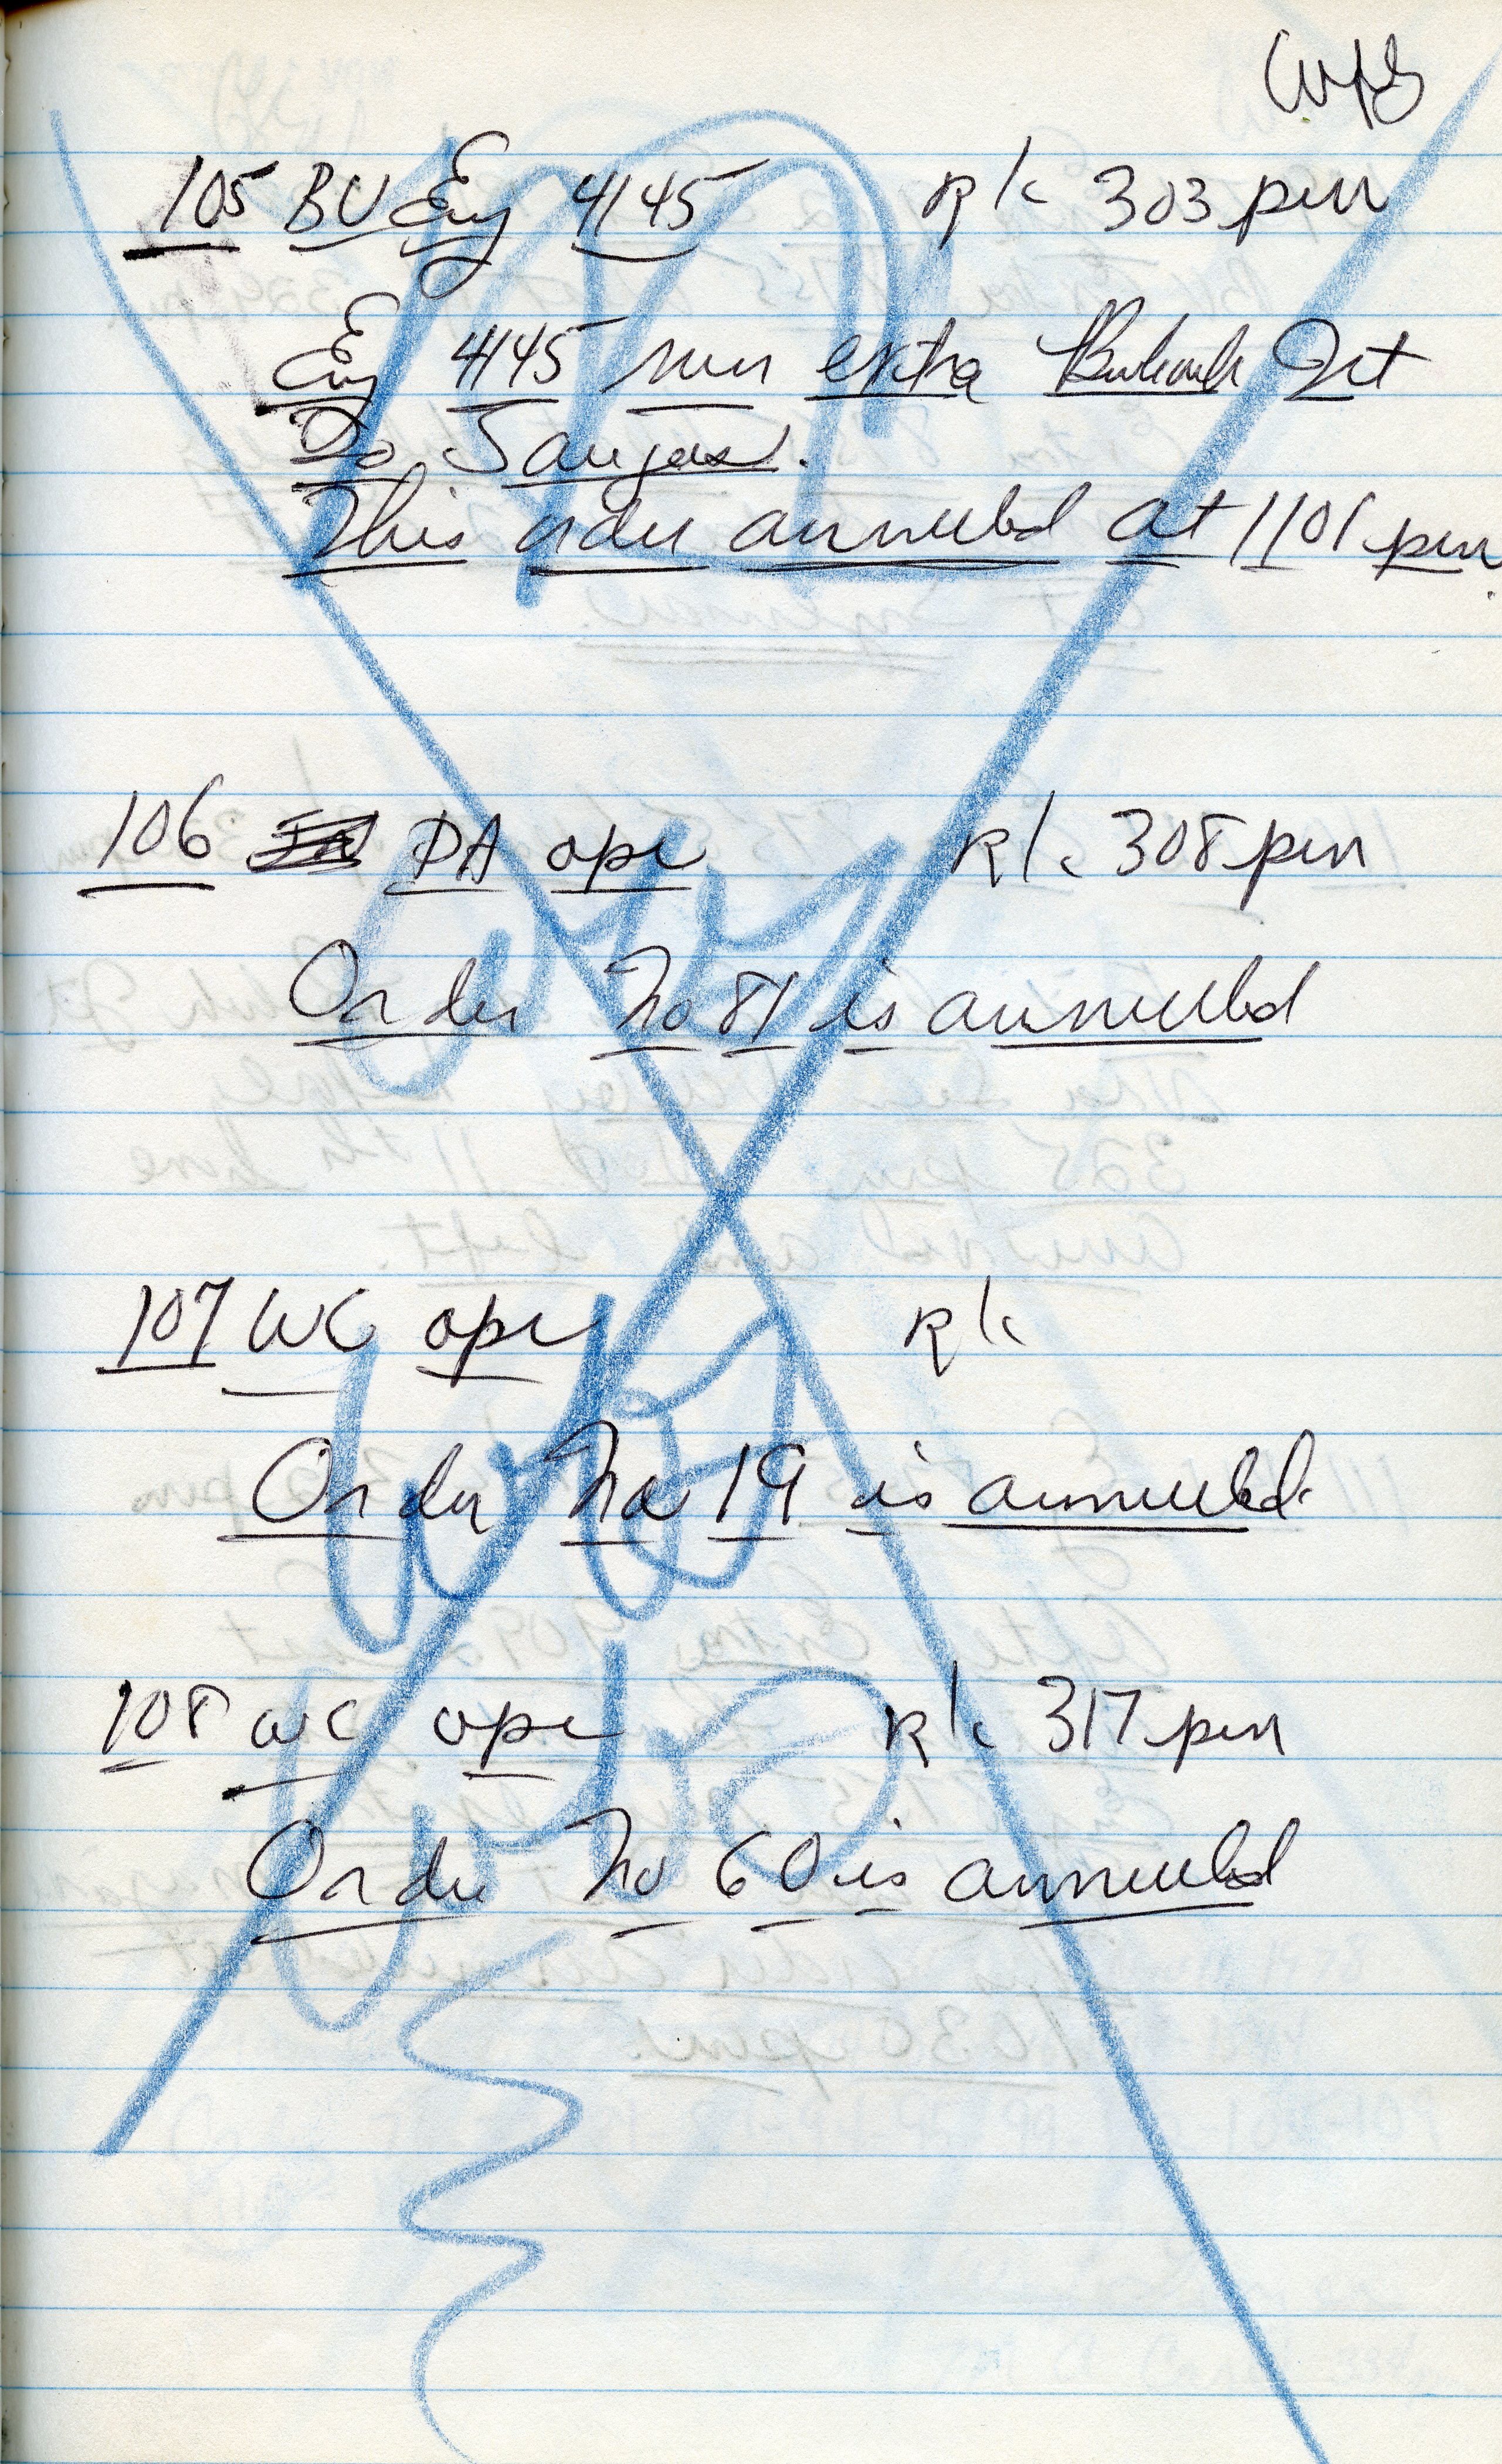 105 BU Eng 4145 R/c 303 pm
Eng 4145 run extra Burbank Jct
To Saugus.
This order annulled at 1101 pm
106 DA opr R/c 308 pm
Order No 81 is annulled
107 WC opr R/c
Order No 19 is annulled
108 WC opr R/c 317 pm
Order No 60 is annulled